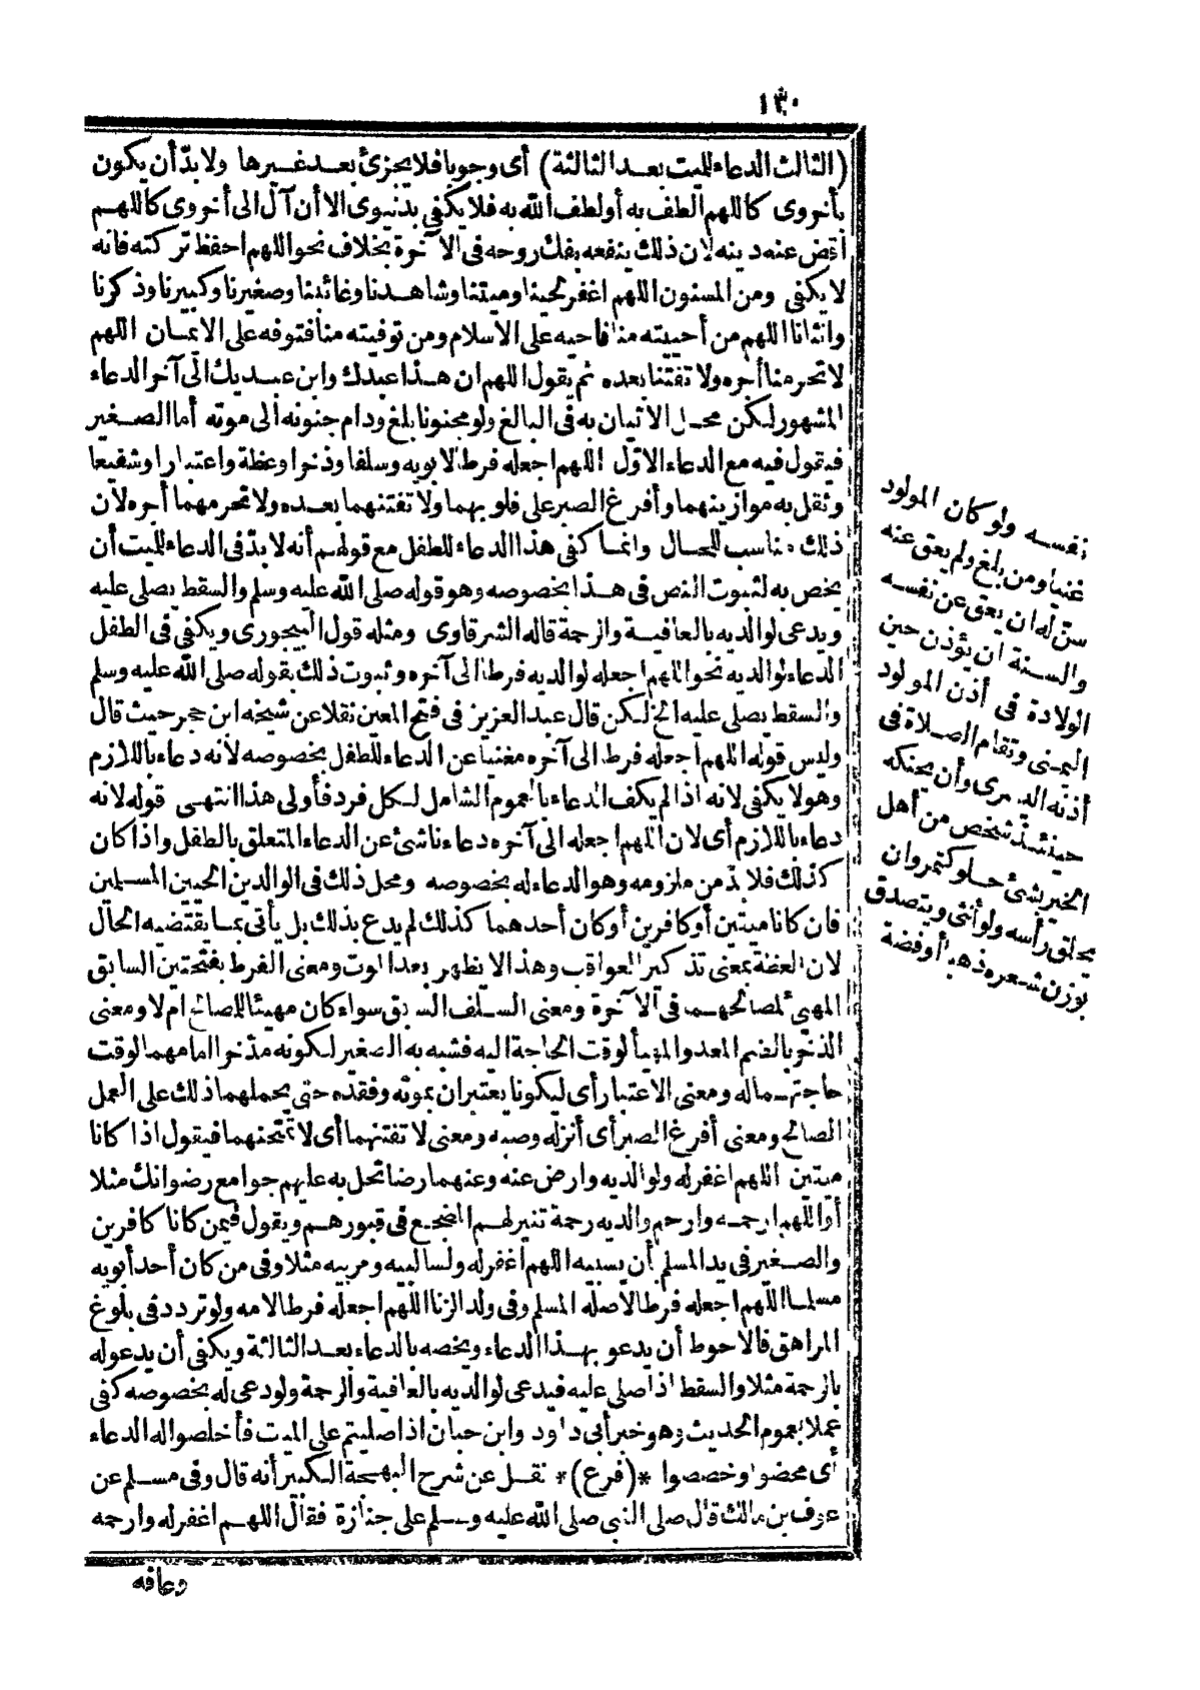 ١٣٠
(الثالث الدعاء للميت بعد الثالثة) أى وجوبا فلا يجزئ بعد غيرها ولا بدّ أن يكون
بأخروى كاللهم الطف به أو لطف الله به فلا يكفى بدنيوى الا أن آل الى أخروى كاللهم
اقض عنه دينه لان ذلك ينفعه بفك روحه فى الآخرة بخلاف نحو اللهم احفظ تركته فانه
لا يكفى ومن المسنون اللهم اغفر لحينا وميتنا وشاهدنا وغائبنا وصغيرنا وكبيرنا وذكرنا
وانثانا اللهم من أحييته منا فأحيه على الاسلام ومن توفيته منا فتوفه على الايمان اللهم
لا تحرمنا أجره ولا تفتنا بعده ثم يقول اللهم ان هذا عبدك وابن عبديك الى آخر الدعاء
المشهور لكن محل الاتيان به فى البالغ ولو مجنونا بلغ ودام جنونه الى موته أما الصغير
فيقول فيه مع الدعاء الاوّل اللهم اجعله فرطا لابويه وسلفا وذخرا وعظة واعتبارا وشفيعا
وثقل به موازينهما وأفرغ الصبر على قلوبهما ولا تفتنهما بعده ولا تحرمهما أجره لان
ذلك مناسب للحال وانما كفى هذا الدعاء للطفل مع قولهم أنه لا بدّ فى الدعاء للميت أن
يخص به لثبوت النص فى هذا بخصوصه وهو قوله صلى الله عليه وسلم والسقط يصلى عليه
ويدعى لوالديه بالعافية والرحمة قاله الشرقاوى ومثله قول البيجورى ويكفى فى الطفل
الدعاء لوالديه نحو اللهم اجعله لوالديه فرطا الى آخره وثبوت ذلك بقوله صلى الله عليه وسلم
والسقط يصلى عليه الخ لكن قال عبد العزيز فى فتح المعين نقلا عن شيخه ابن حجر حيث قال
وليس قوله اللهم اجعله فرطا الى آخره مغنيا عن الدعاء للطفل بخصوصه لأنه دعاء باللازم
وهو لا يكفى لانه اذا لم يكف الدعاء بالعموم الشامل لكل فرد فأولى هذا انتهى قوله لانه
دعاء باللازم أى لان اللهم اجعله الى آخره دعاء ناشئ عن الدعاء المتعلق بالطفل واذا كان
كذلك فلا بدّ من ملزومه وهو الدعاء له بخصوصه ومحل ذلك فى الوالدين الحيين المسلمين
فان كانا ميتين أو كافرين أو كان أحدهما كذلك لم يدع بذلك بل يأتى بما يقتضيه الحال
لان العظة بمعنى تذكير العواقب وهذا لا يظهر بعد الموت ومعنى الفرط بفتحتين السابق
المهيئ لمصالحهما فى الآخرة ومعنى السلف السابق سواء كان مهيئا للمصالح أم لا ومعنى
الذخر بالضم المعد والمهيأ لوقت الحاجة اليه فشبه به الصغير لكونه مدّخرا امامهما لوقت
حاجتهما له ومعنى الاعتبار أى ليكونا يعتبران بموته وفقده حتى يحملهما ذلك على العمل
الصالح ومعنى أفرغ الصبر أى أنزله وصبه ومعنى لا تفتنهما أى لا تمتحنهما فيقول اذا كانا
ميتين اللهم اغفر له ولوالديه وارض عنه وعنهما رضا تحل به عليهم جوامع رضوانك مثلا
أو اللهم ارحمه وارحم والديه رحمة تنير لهم المضجع فى قبورهم ويقول فيمن كانا كافرين
والصغير فى يد المسلم بأن يسبيه اللهم اغفر له ولسابيه ومربيه مثلا وفى من كان أحد أبويه
مسلما اللهم اجعله فرطا لأصله المسلم وفى ولد الزنا اللهم اجعله فرطا لامه ولو تردد فى بلوغ
المراهق فالاحوط أن يدعو بهذا الدعاء ويخصه بالدعاء بعد الثالثة ويكفى أن يدعو له
بالرحمة مثلا والسقط اذا صلى عليه فيدعى لوالديه بالعافية والرحمة ولو دعى له بخصوصه كفى
عملا بعموم الحديث وهو خبر أبى داود وابن حبان اذا صليتم على الميت فأخلصوا له الدعاء
أى محضوا وخصصوا *(فرع)* نقل عن شرح البهجة الكبير أنه قال وفى مسلم عن
عوف بن مالك قال صلى النبى صلى الله عليه وسلم على جنازة فقال اللهم اغفر له وارحمه
وعافه
نفسه ولو كان المولود
غنيا ومن بلغ ولم يعق عنه
سنّ له ان يعق عن نفسه
والسنة ان يؤذن حين
الولادة فى أذن المولود
اليمنى وتقام الصلاة فى
أذنه اليسرى وأن يحنكه
حينئذ شخص من أهل
الخير بشئ حلو كتمر وان
يحلق رأسه ولو أنثى ويتصدق
بوزن شعره ذهبا أو فضة